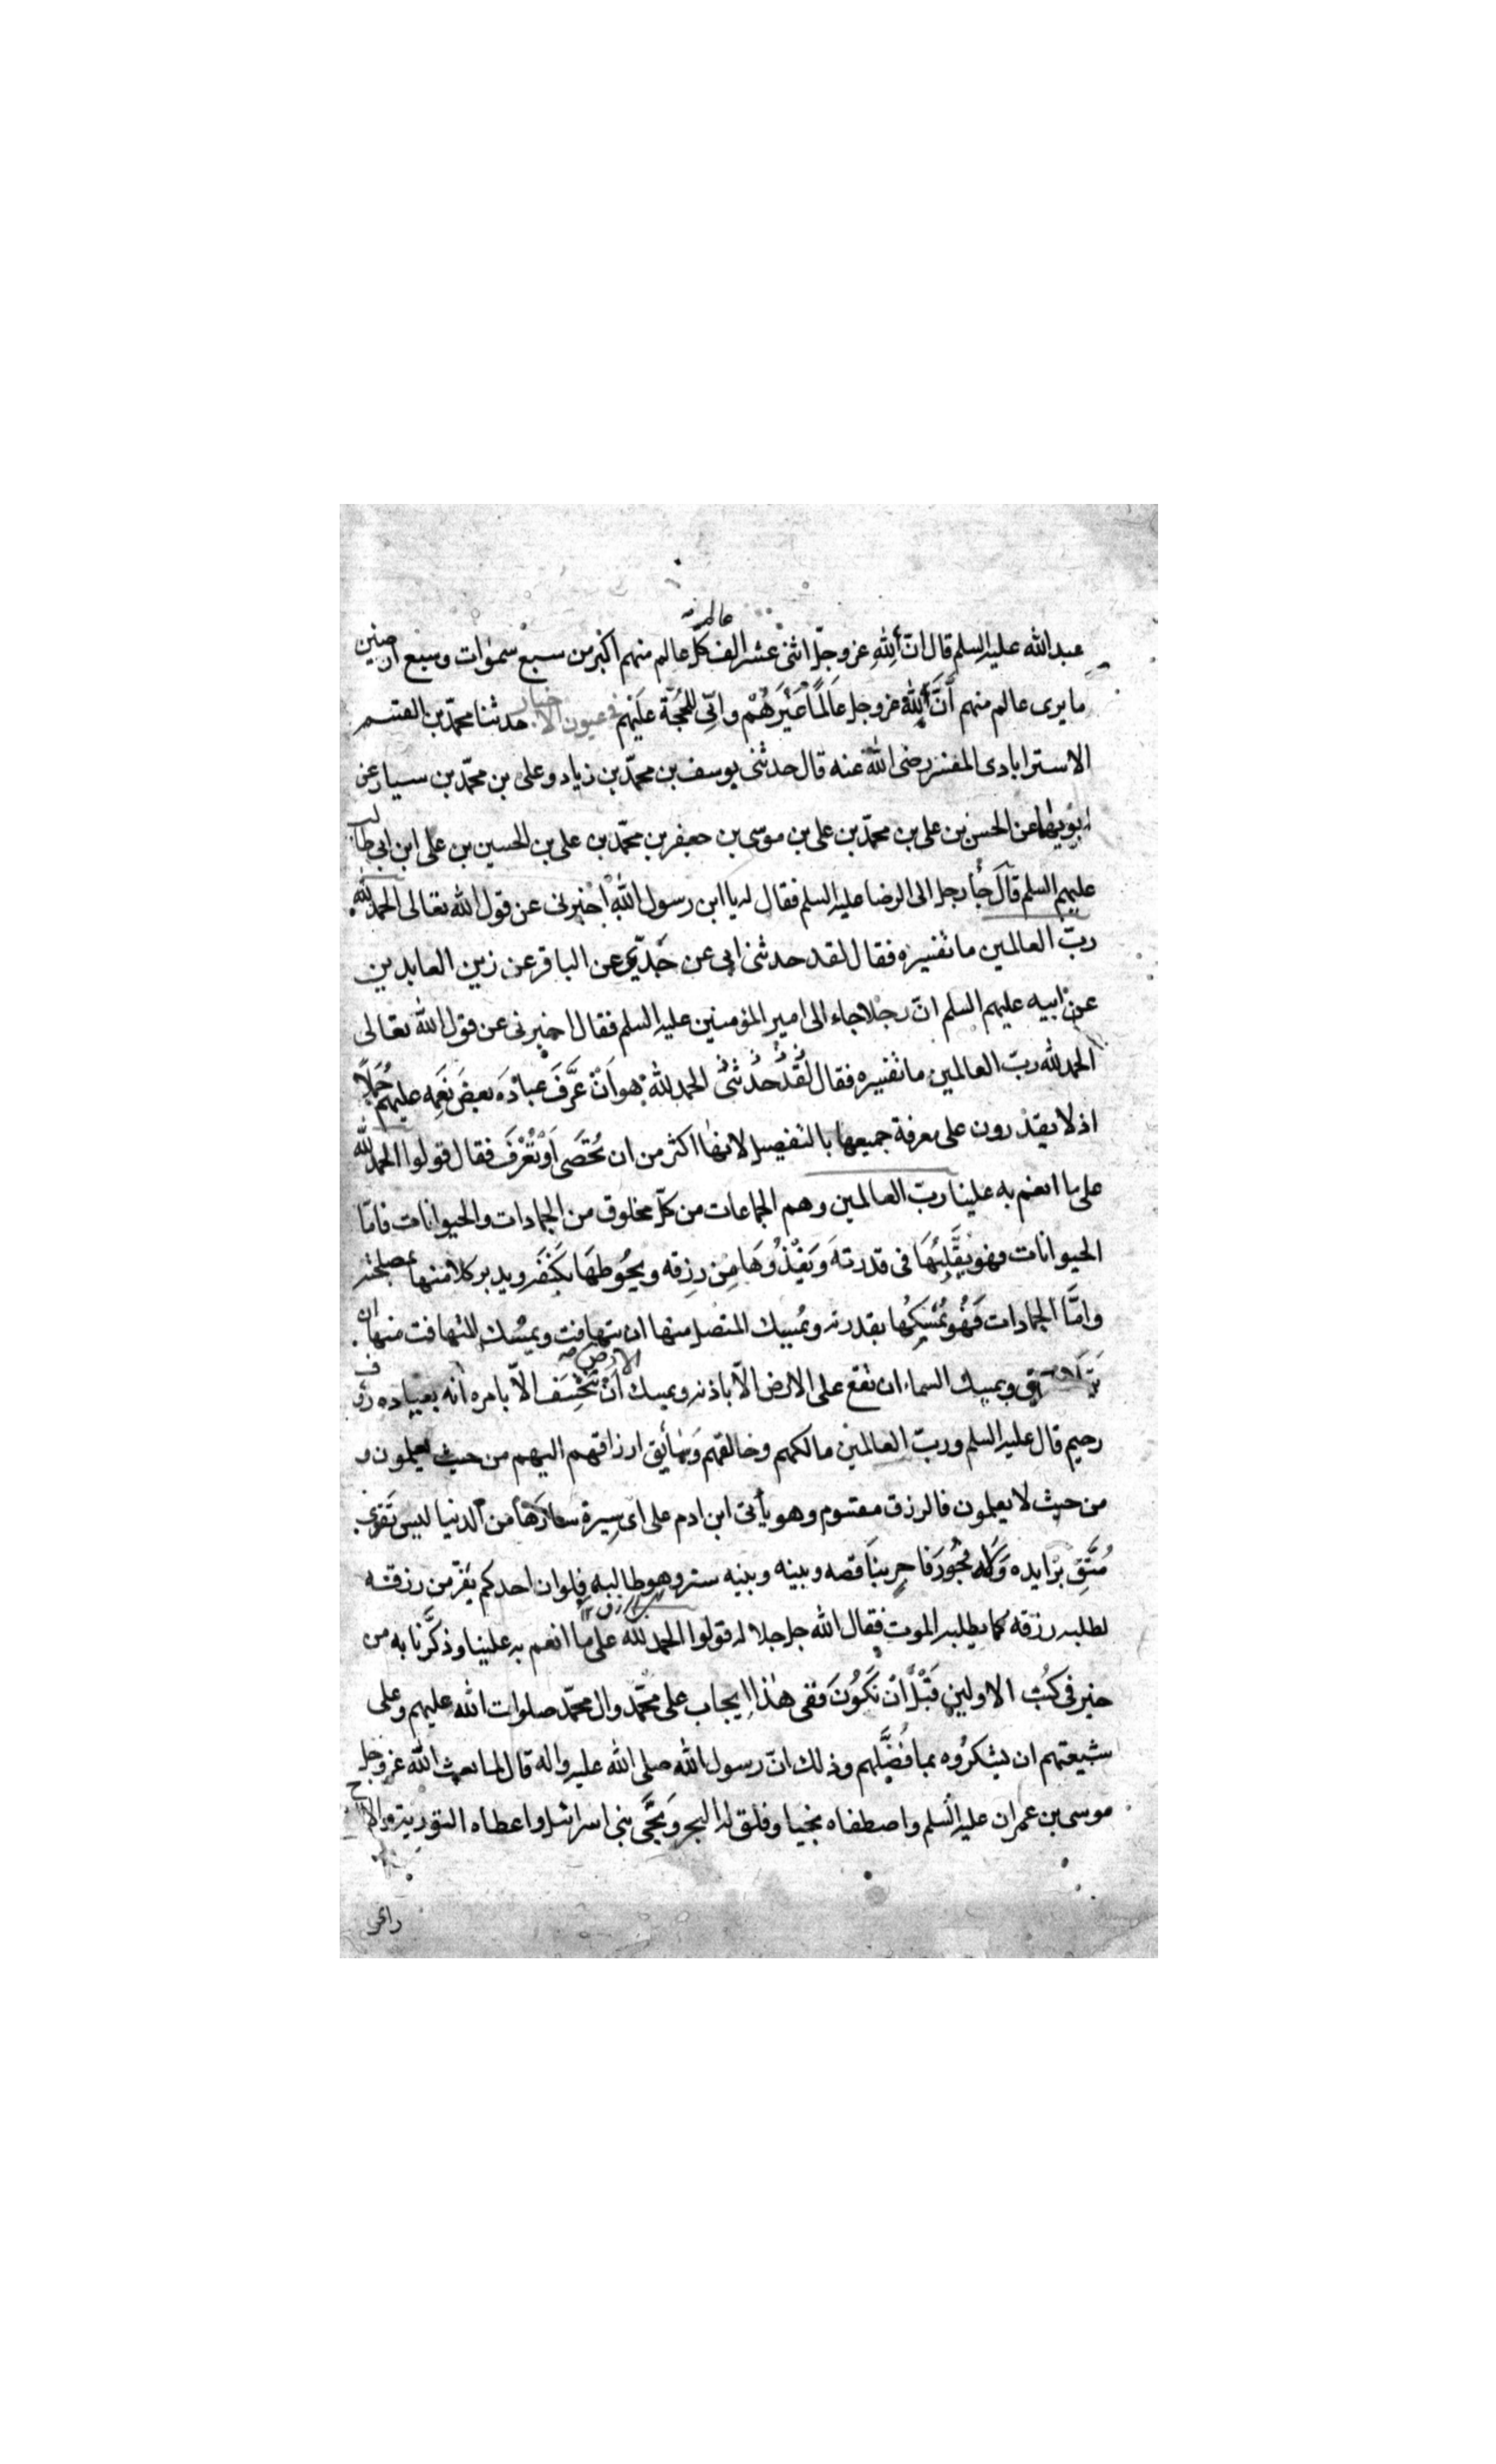 عبد الله عليه السلم قال ان لله عز وجلّ اثنى عشر الف عالم كلّ عالم منهم اكبر من سبع سموات وسبع ارضين
ما يرى عالم منهم أنَّ لله عز وجل عَالَمًا غَيْرَهُمْ وانّى للحُجّة عَلَيْهم في عيون الاخبار حدثنا محمّد بن القسم
الاسترابادى المفسر رضى الله عنه قال حدثنى يوسف بن محمّد بن زياد وعلى بن محمّد بن سيار عن
ابويهما عن الحسن بن على بن محمّد بن على بن موسى بن جعفر بن محمّد بن على بن الحسين بن على ابن ابى طالب
عليهم السلم قال جاء رجل الى الرضا عليه السلم فقال له يا ابن رسول الله اخبرنى عن قول الله تعالى الحمد لله
ربّ العالمين ما تفسيره فقال لقد حدثنى ابى عن جدّى عن الباقر عن زين العابدين
عن ابيه عليهم السلم انّ رجلا جاء الى امير المؤمنين عليه السلم فقال اخبرنى عن قول الله تعالى
الحمد لله ربّ العالمين ما تفسيره فقال لقد حدثنى الحمد لله هو اَنْ عَرَّفَ عبادَه بعضَ نِعَمِه عليهم جُمَلًا
اذ لا يقدرون على معرفة جميعها بالتفصيل لانها اكثر من ان تُحْصَى اَوْ تُعْرَفَ فقال قولوا الحمد لله
على ما انعم به علينا ربّ العالمين وهم الجماعات من كلّ مخلوق من الجمادات والحيوانات فامّا
الحيوانات فهو يُقَلِّبُهَا فى قدرته وَيَغْذُوُهَا مِن رِزقه ويحُوطهَا بكَنَفه ويدبر كلا منها بمصلحته
وامَّا الجمادات فَهُو يُمْسِكُها بقدرته ويُمسِك المتصل منها ان يتهافت ويمسك المتهافت منها ان
يَتَلاصق ويمسك السماء ان تقع على الارض الّا باذنه ويمسك الارض اَنْ تَنْخَسِف الّا بامره انه بعباده رؤف
رحيم قال عليه السلم وربّ العالمين مالكهم وخالقهم وسائق ارزاقهم اليهم من حيث يعلمون و
من حيث لا يعلمون فالرزق مقسوم وهو يأتى ابن ادم على اى سِيرة سارَها من الدنيا ليس تَقوى
مُتَّقٍ بزايده وَلا فُجُور فَاجِر بناقصه وبينه وبينه ستر وهو طالبه فلو ان احدكم يفرّ من رزقه
لطلبه رزقه كما يطلبه الموت فقال الله جل جلاله قولوا الحمد لله على ما انعم به علينا وذكَّرنا به من
خير فى كتُب الاولين قَبْلَ اَنْ نَكُونَ ففى هذا ايجاب على محمّد وال محمّد صلوات الله عليهم وعلى
شيعتهم ان يشكرُوه بما فَضَّلهم وذلك انّ رسول الله صلى الله عليه واله قال لما بعث الله عز وجل
موسى بن عمران عليه السلم واصطفاه نجيا وفلق له البحر وَنَجَّى بنى اسرائيل واعطاه التورية والالواح